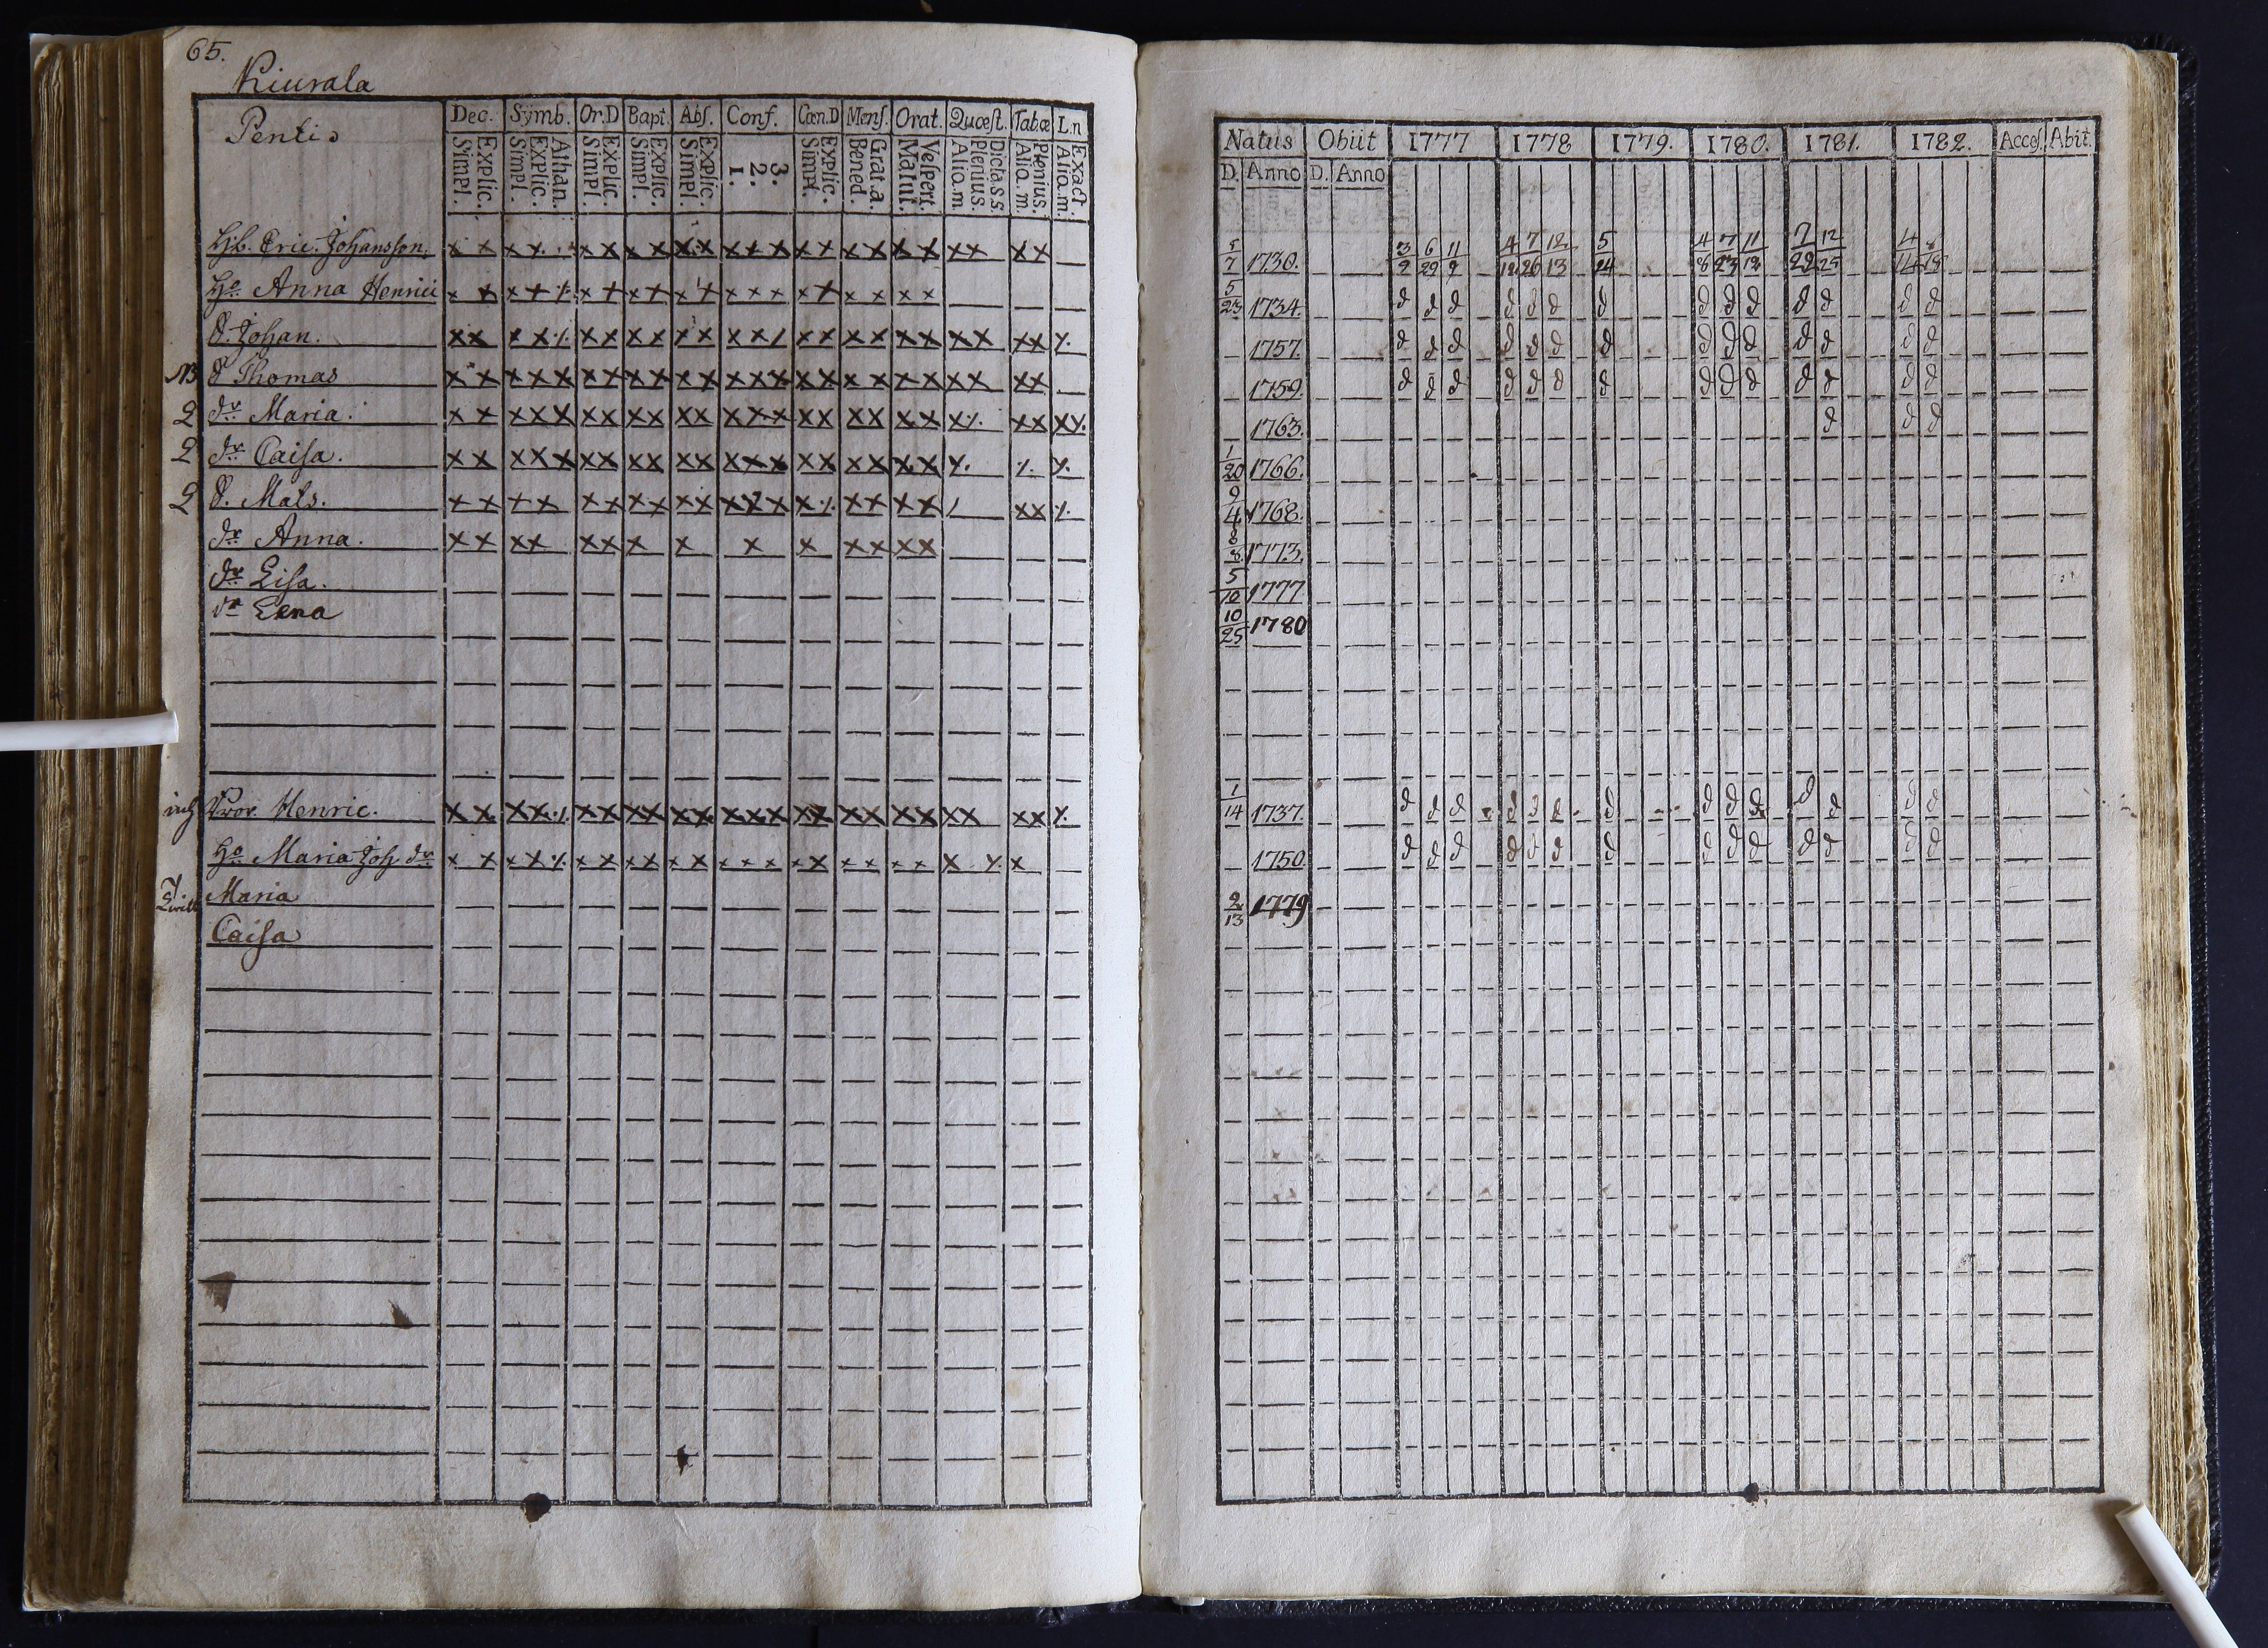 65.
Kiurala
Pentis
Dec. Symb. Or.D Bapt. Abs. Conf. Cœn.D Mens. Orat. Quæst. Tabœ L.n
Simpl. Explic. Simpl. Explic. Athan. Simpl. Explic. Simpl. Explic. Simpl. Explic. 1. 2. 3. Simpl. Explic. Bened. Grat.a. Matut. Vespert. Alio.m Plenius. Dicta.s.s. Alio.m. Plenius. Alio.m. Exact.
Hb. Eric. Johansson. x x x x x x x x x x x x x x x x x x x x x x x x
Ho Anna Henrici x x x x ⁒ x x x x x x x x x x x x x x x
S. Johan. x x x x ⁒ x x x x x x x x / x x x x x x x x x x ⁒
NB S Thomas x x x x x x x x x x x x x x x x x x x x x x x x
2 dr Maria. x x x x x x x x x x x x x x x x x x x x x ⁒ x x x ⁒
2 dr Caisa. x x x x x x x x x x x x x x x x x x x x ⁒ ⁒ ⁒
2 S. Mats. x x x x x x x x x x x x x x ⁒ x x x x / x x ⁒
dr Anna. x x x x x x x x x x x x x x
dr Lisa.
dr Lena
inh Bror Henric. x x x x ⁒ x x x x x x x x x x x x x x x x x x x ⁒
Ho Maria Joh dr x x x x ⁒ x x x x x x x x x x x x x x x x ⁒ x
Maria
Caisa
Natus Obiit 1777 1778 1779. 1780. 1781. 1782. Acces. Abit.
D. Anno D. Anno
5/7 1730. 3/9 6/29 11/9 4/12 7/26 12/13 5/24 4/8 7/23 11/12 7/29 12/25 4/14 8/18
5/23 1734. d d d d d d d d d d d d d d
1757. d d d d d d d d d d d d d d
1759. d d d d d d d d d d d d d d
1763. d d d
1/20 1766.
9/4 1768.
8/8 1773.
5/12 1777
10/25 1780
1/14 1737. d d d d d d d d d d d d d d
1750. d d d d d d d d d d d d d d
2/13 1779